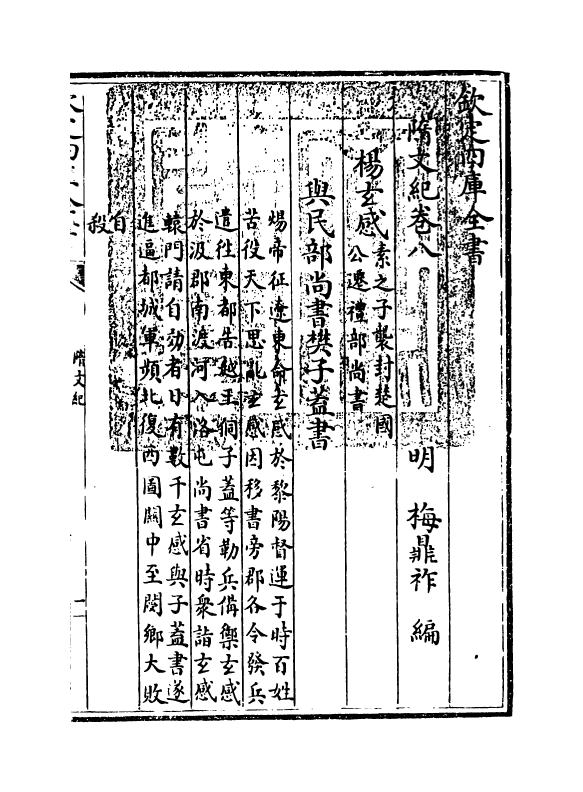 欽定四庫全書
隋文紀卷八
明 梅鼎祚 編
楊玄感素之子襲封楚國
公遷禮部尚書
與民部尚書樊子蓋書
煬帝征遼東命玄感於黎陽督運于時百姓
苦役天下思亂玄感因移書旁郡各令發兵
遣徃東都告越王侗子蓋等勒兵備禦玄感
於汲郡南渡河入洛屯尚書省時衆詣玄感
轅門請自効者日有數千玄感與子蓋書遂
進逼都城軍頻北復西圖關中至閿鄉大敗
自
殺
隋文紀